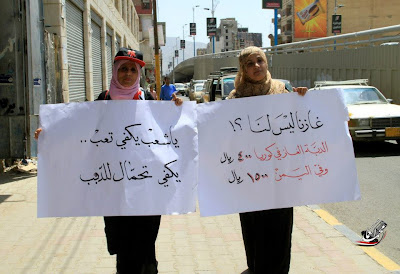 غازنا ليس لنا ؟!
الدبة الغاز في كوريا ٤٠٠ ريال
وفي اليمن ١٥٠٠ ريال
يا شعب يكفي تعب ..
يكفي تحمّال للذوب